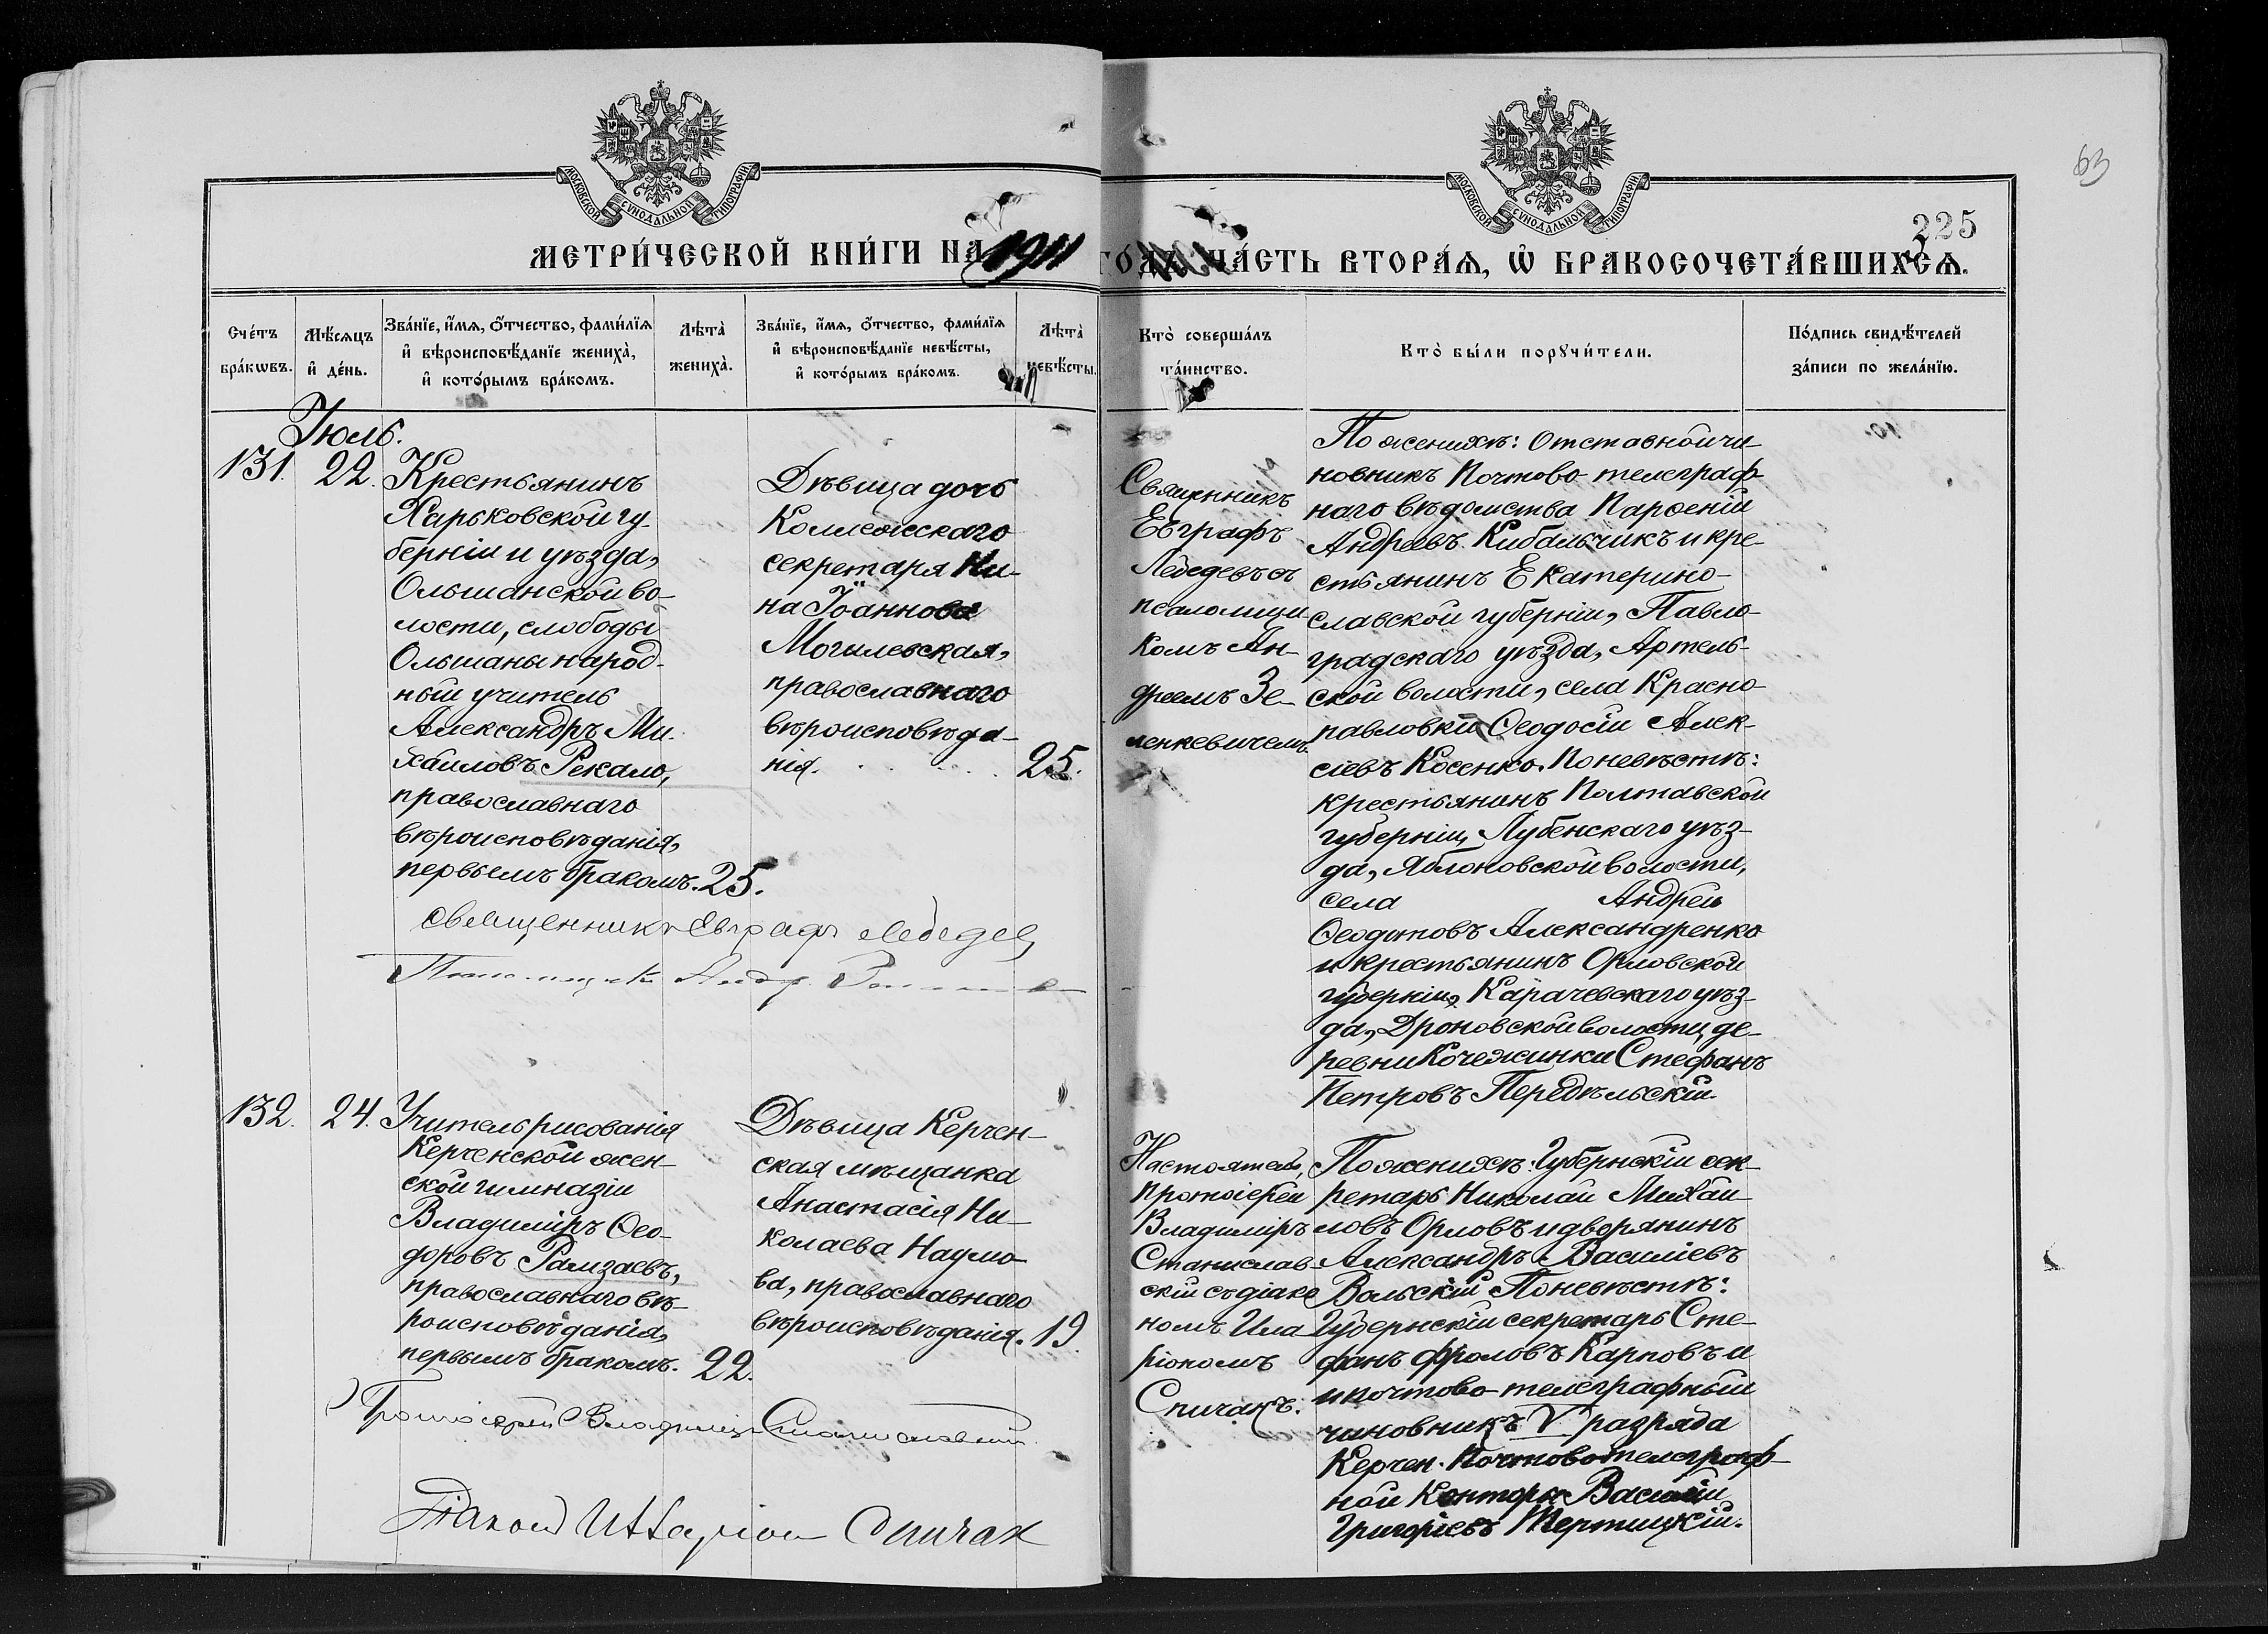 63
225
МОСКОВСКОЙ СѴНОДАЛЬНОЙ ТИПОГРАФІИ
МОСКОВСКОЙ СѴНОДАЛЬНОЙ ТИПОГРАФІИ
МЕТРИ́ЧЕСКОЙ КНИ́ГИ НА 1911 ГО́ДЪ ЧА́СТЬ ВТОРА́Ѧ, Ѡ҆ БРАКОСОЧЕТА́ВШИХСѦ.
Сче́тъ бра́кѡвъ.
Мѣ́сѧцъ и҆ де́нь.
Зва́нїе, и҆́мѧ, о҆́тчество, фами́лїѧ
и҆ вѣроисповѣ́данїе жениха̀,
и҆ кото́рымъ бра́комъ.
Лѣта̀ жениха̀.
Зва́нїе, и҆́мѧ, о҆́тчество, фами́лїѧ
и҆ вѣроисповѣ́данїе невѣ́сты,
и҆ кото́рымъ бра́комъ.
Лѣта̀ невѣ́сты.
Кто̀ соверша́лъ
та́инство.
Кто̀ бы́ли порꙋчи́тели.
По́дпись свидѣ́телей
за́писи по жела́нїю.
Іюль.
131. 22.
Крестьянинъ
Харьковской гу-
берніи и уѣзда,
Ольшанской во-
лости, слободы
Ольшаны народ-
ный учитель
Александръ Ми-
хаиловъ Рекало,
православнаго
вѣроисповѣданія,
первымъ бракомъ. 25.
Дѣвица дочь
Коллежскаго
секретаря Ни-
на Іоаннова
Могилевская,
православнаго
вѣроисповѣда-
нія. 25.
Священникъ
Евграфъ
Лебедевъ съ
псаломщи-
комъ Ан-
дреемъ Зе-
ленкевичемъ
По женихѣ: Отставной чи-
новникъ Почтово-телеграф-
наго вѣдомства Парѳеній
Андреевъ Кибальчикъ и кре-
стьянинъ Екатерино-
славской губерніи, Павло-
градскаго уѣзда, Артель-
ской волости, села Красно-
павловки Ѳеодосій Алек-
сіевъ Косенко. По невѣстѣ:
крестьянинъ Полтавской
губерніи, Лубенскаго уѣз-
да, Яблоновской волости,
села Андрей
Ѳеодотовъ Александренко
и крестьянинъ Орловской
губерніи, Карачевскаго уѣз-
да, Дроновской волости, де-
ревни Кочежинки Стефанъ
Петровъ Передѣльскій.
Священникъ Евграфъ Лебедев
132. 24.
Учитель рисованія
Керченской жен-
ской гимназіи
Владиміръ Ѳео-
доровъ Рамзаевъ,
православнаго вѣ-
роисповѣданія,
первымъ бракомъ. 22.
Дѣвица Керчен-
ская мѣщанка
Анастасія Ни-
колаева Наумо-
ва, православнаго
вѣроисповѣданія. 19.
Настоятель,
Протоіерей
Владиміръ
Станислав-
скій съ діако-
номъ Ила-
ріономъ
Спичакъ.
По женихѣ: Губернскій сек-
ретарь Николай Михаи-
ловъ Орловъ и дворянинъ
Александръ Василіевъ
Вольскій. По невѣстѣ:
Губернскій секретарь Сте-
фанъ Фроловъ Карповъ и
и почтово-телеграфный
чиновникъ V разряда
Керчен. Почтово телеграф-
ной Конторы Василій
Григоріевъ Тертицкій.
Протоіерей Владиміръ Станиславскій
Діакон Илларион Спичак